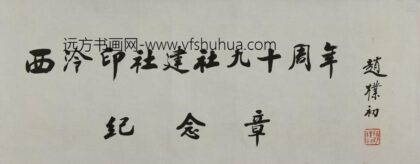 远方书画网-www.yfshuhua.com
西泠印社建社九十周年
纪念章
趙樸初